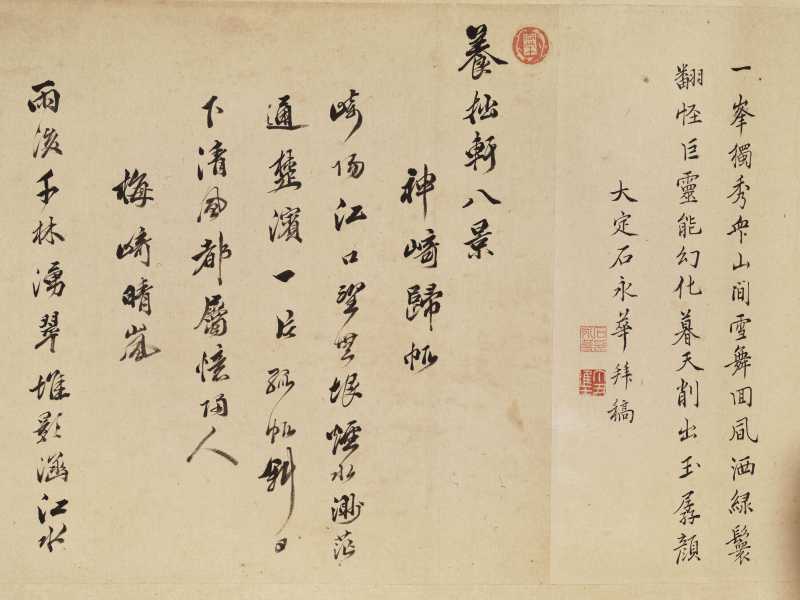 一峯獨秀衆山間雪舞回風洒綠鬟
翻怪巨靈能幻化暮天削出玉孱顏
大定石永華拜稿
養拙軒八景
神崎歸帆
崎陽江口望無垠煙水渺茫
通楚濱一片孤帆斜日
下清風都屬憶歸人
梅崎晴嵐
雨後千林湧翠堆影涵江水